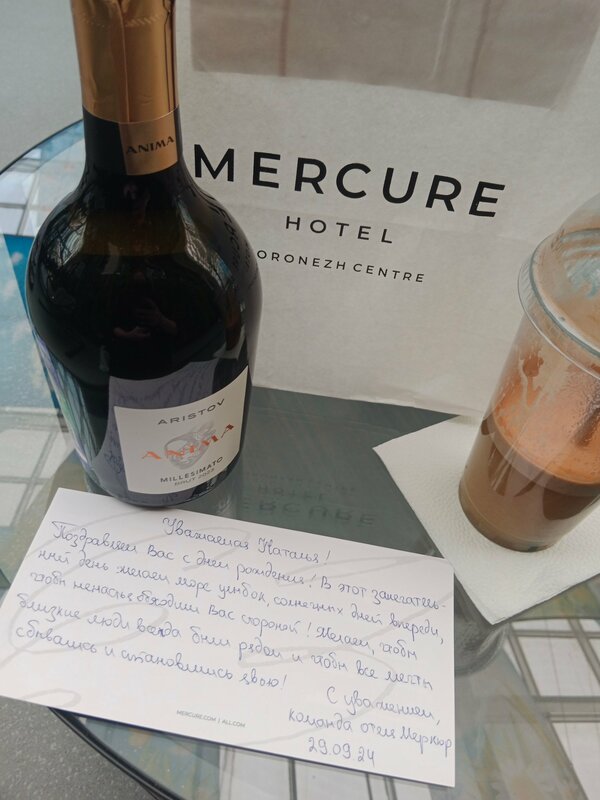 ANIMA
MERCURE
HOTEL
ORONEZH CENTRE
ARISTOV
ANIMA
MILLESIMATO
BRUT 2022
Уважаемая Наталья!
Поздравляем Вас с днем рождения! В этот замечатель-
ный день желаем море улыбок, солнечных дней впереди,
чтобы ненастья обходили Вас стороной! Желаем, чтобы
близкие люди всегда были рядом и чтобы все мечты
сбывались и становились явью!
С уважением,
команда отеля Меркюр
29.09.24
MERCURE.COM | ALL.COM
HOTEL
MERCURE